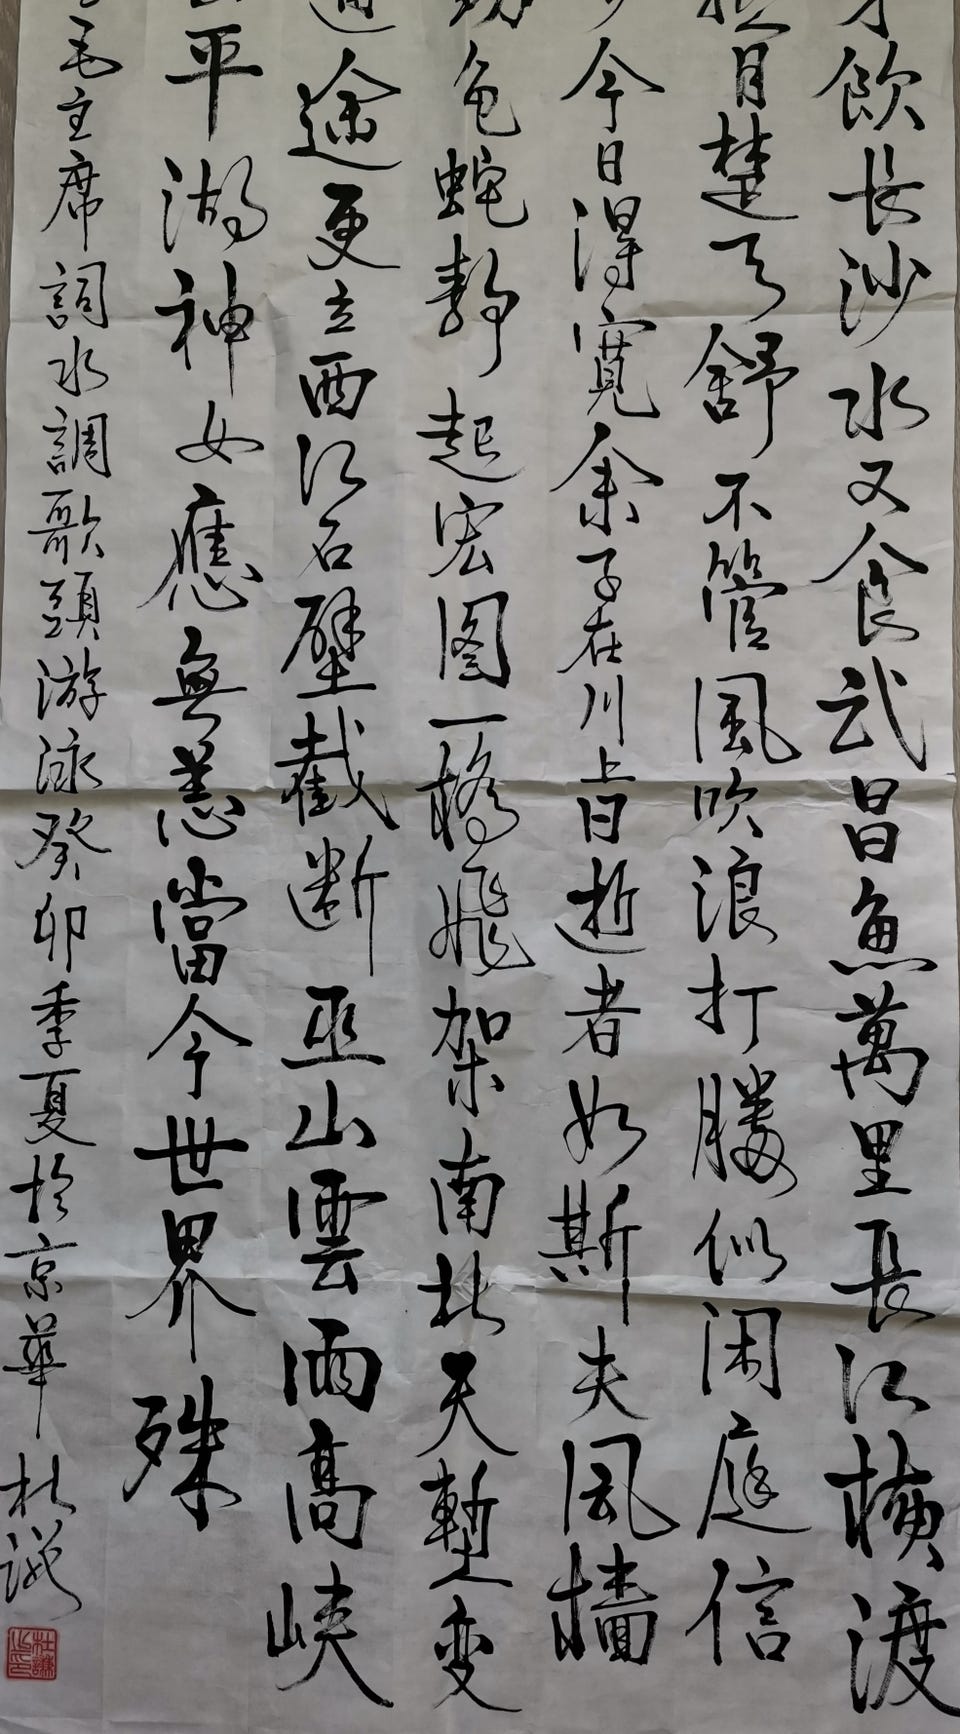 才飲長沙水又食武昌魚萬里長江橫渡
極目楚天舒不管風吹浪打勝似闲庭信
今日得寬余子在川上曰逝者如斯夫風檣
動龟蛇靜起宏图一橋飛架南北天塹変
途更立西江石壁截断巫山雲雨高峡
平湖神女應無恙當今世界殊
毛主席詞水調歌頭游泳癸卯季夏於京華杜謙
杜謙之印